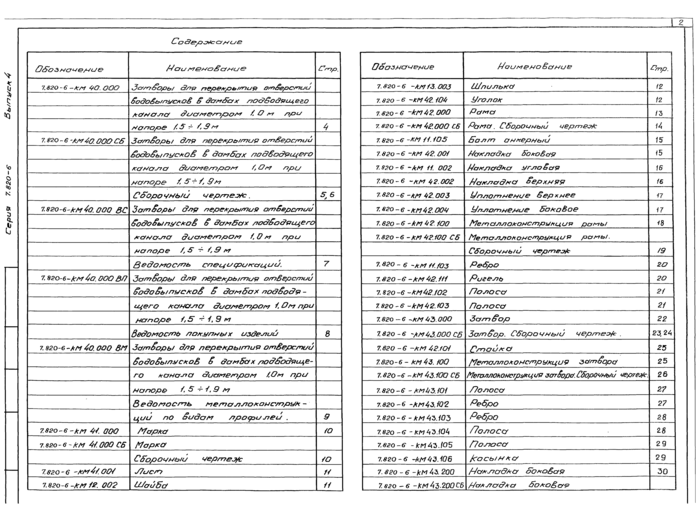 2
Содержание
Серия 7.820-6 Выпуск 4
Обозначение Наименование Стр.
7.820-6-КМ 40.000 Затворы для перекрытия отверстий
водовыпусков в дамбах подводящего
канала диаметром 1,0 м при
напоре 1,5÷1,9 м 4
7.820-6-КМ 40.000 СБ Затворы для перекрытия отверстий
водовыпусков в дамбах подводящего
канала диаметром 1,0 м при
напоре 1,5÷1,9 м
Сборочный чертеж. 5,6
7.820-6-КМ 40.000 ВС Затворы для перекрытия отверстий
водовыпусков в дамбах подводящего
канала диаметром 1,0 м при
напоре 1,5÷1,9 м
Ведомость спецификаций. 7
7.820-6-КМ 40.000 ВП Затворы для перекрытия отверстий
водовыпусков в дамбах подводя-
щего канала диаметром 1,0 м при
напоре 1,5÷1,9 м
Ведомость покупных изделий 8
7.820-6-КМ 40.000 ВМ Затворы для перекрытия отверстий
водовыпусков в дамбах подводяще-
го канала диаметром 1,0 м при
напоре 1,5÷1,9 м
Ведомость металлоконструк-
ций по видам профилей. 9
7.820-6-КМ 41.000 Марка 10
7.820-6-КМ 41.000 СБ Марка
Сборочный чертеж 10
7.820-6-КМ 41.001 Лист 11
7.820-6-КМ 12.002 Шайба 11
Обозначение Наименование Стр.
7.820-6-КМ 13.003 Шпилька 12
7.820-6-КМ 42.104 Уголок 12
7.820-6-КМ 42.000 Рама 13
7.820-6-КМ 42.000 СБ Рама. Сборочный чертеж 14
7.820-6-КМ 11.105 Болт анкерный 15
7.820-6-КМ 42.001 Накладка боковая 15
7.820-6-КМ 11.002 Накладка угловая 16
7.820-6-КМ 42.002 Накладка верхняя 16
7.820-6-КМ 42.003 Уплотнение верхнее 17
7.820-6-КМ 42.004 Уплотнение боковое 17
7.820-6-КМ 42.100 Металлоконструкция рамы 18
7.820-6-КМ 42.100 СБ Металлоконструкция рамы.
Сборочный чертеж 19
7.820-6-КМ 11.103 Ребро 20
7.820-6-КМ 42.111 Ригель 20
7.820-6-КМ 42.102 Полоса 21
7.820-6-КМ 42.103 Полоса 21
7.820-6-КМ 43.000 Затвор 22
7.820-6-КМ 43.000 СБ Затвор. Сборочный чертеж. 23,24
7.820-6-КМ 42.101 Стойка 25
7.820-6-КМ 43.100 Металлоконструкция затвора 25
7.820-6-КМ 43.100 СБ Металлоконструкция затвора. Сборочный чертеж. 26
7.820-6-КМ 43.101 Полоса 27
7.820-6-КМ 43.102 Ребро 27
7.820-6-КМ 43.103 Ребро 28
7.820-6-КМ 43.104 Полоса 28
7.820-6-КМ 43.105 Полоса 29
7.820-6-КМ 43.106 Косынка 29
7.820-6-КМ 43.200 Накладка боковая 30
7.820-6-КМ 43.200 СБ Накладка боковая